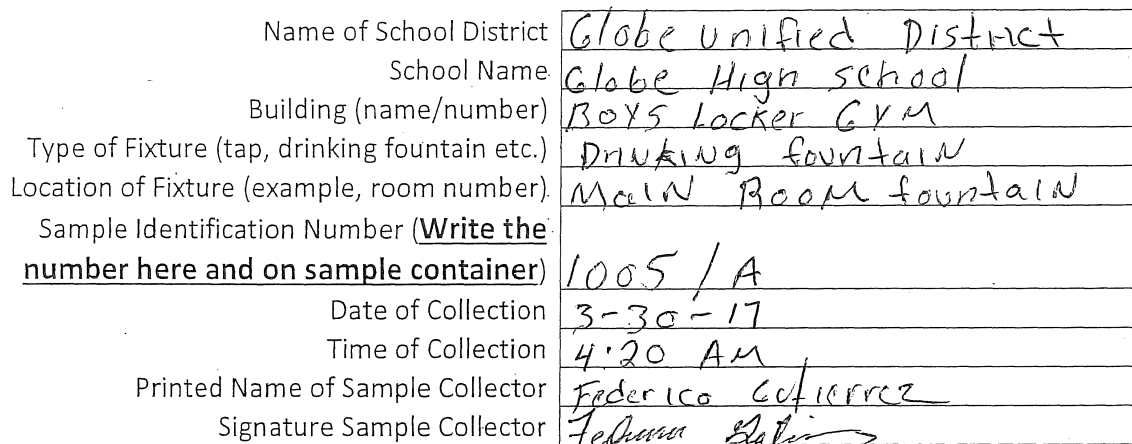 Name of School District Globe unified District
School Name Globe High school
Building (name/number) BOYS Locker GYM
Type of Fixture (tap, drinking fountain etc.) Drinking fountain
Location of Fixture (example, room number) Main Room fountain
Sample Identification Number (Write the
number here and on sample container) 1005 / A
Date of Collection 3-30-17
Time of Collection 4:20 AM
Printed Name of Sample Collector Federico Gutierrez
Signature Sample Collector